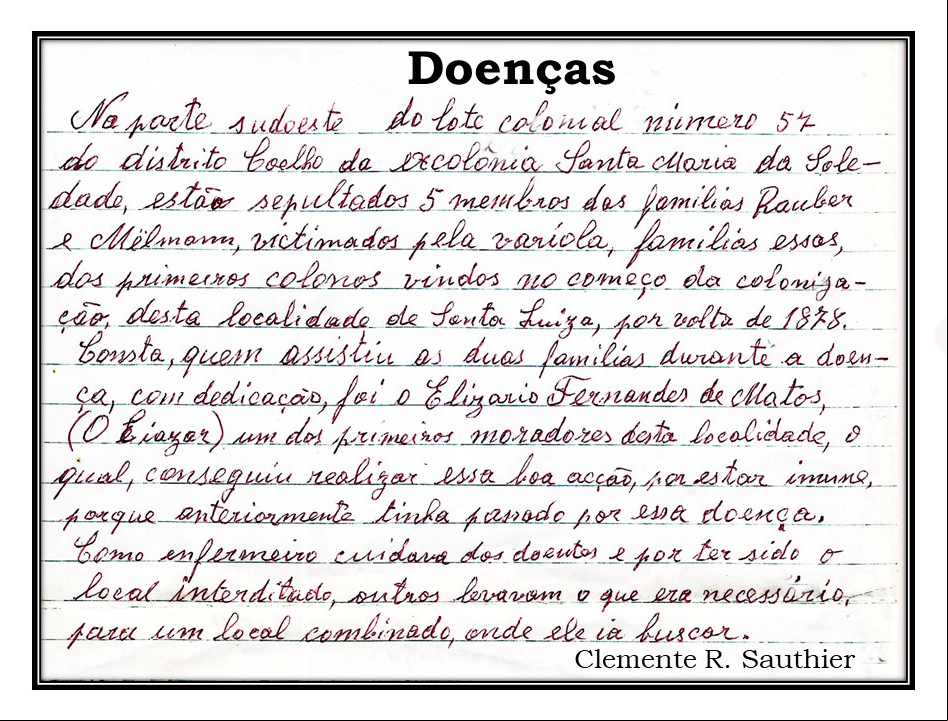 Doenças
Na parte sudoeste do lote colonial número 57
do distrito Coelho da excolônia Santa Maria da Sole-
dade, estão sepultados 5 membros das famílias Rauber
e Mëlmann, victimados pela varíola, famílias essas,
dos primeiros colonos vindos no começo da coloniza-
ção, desta localidade de Santa Luiza, por volta de 1878.
Consta, quem assistiu as duas famílias durante a doen-
ça, com dedicação, foi o Elizario Fernandes de Matos,
(O Liazar) um dos primeiros moradores desta localidade, o
qual, conseguiu realizar essa boa acção, por estar imune,
porque anteriormente tinha passado por essa doença.
Como enfermeiro cuidava dos doentes e por ter sido o
local interditado, outros levavam o que era necessário,
para um local combinado, onde ele ia buscar.
Clemente R. Sauthier